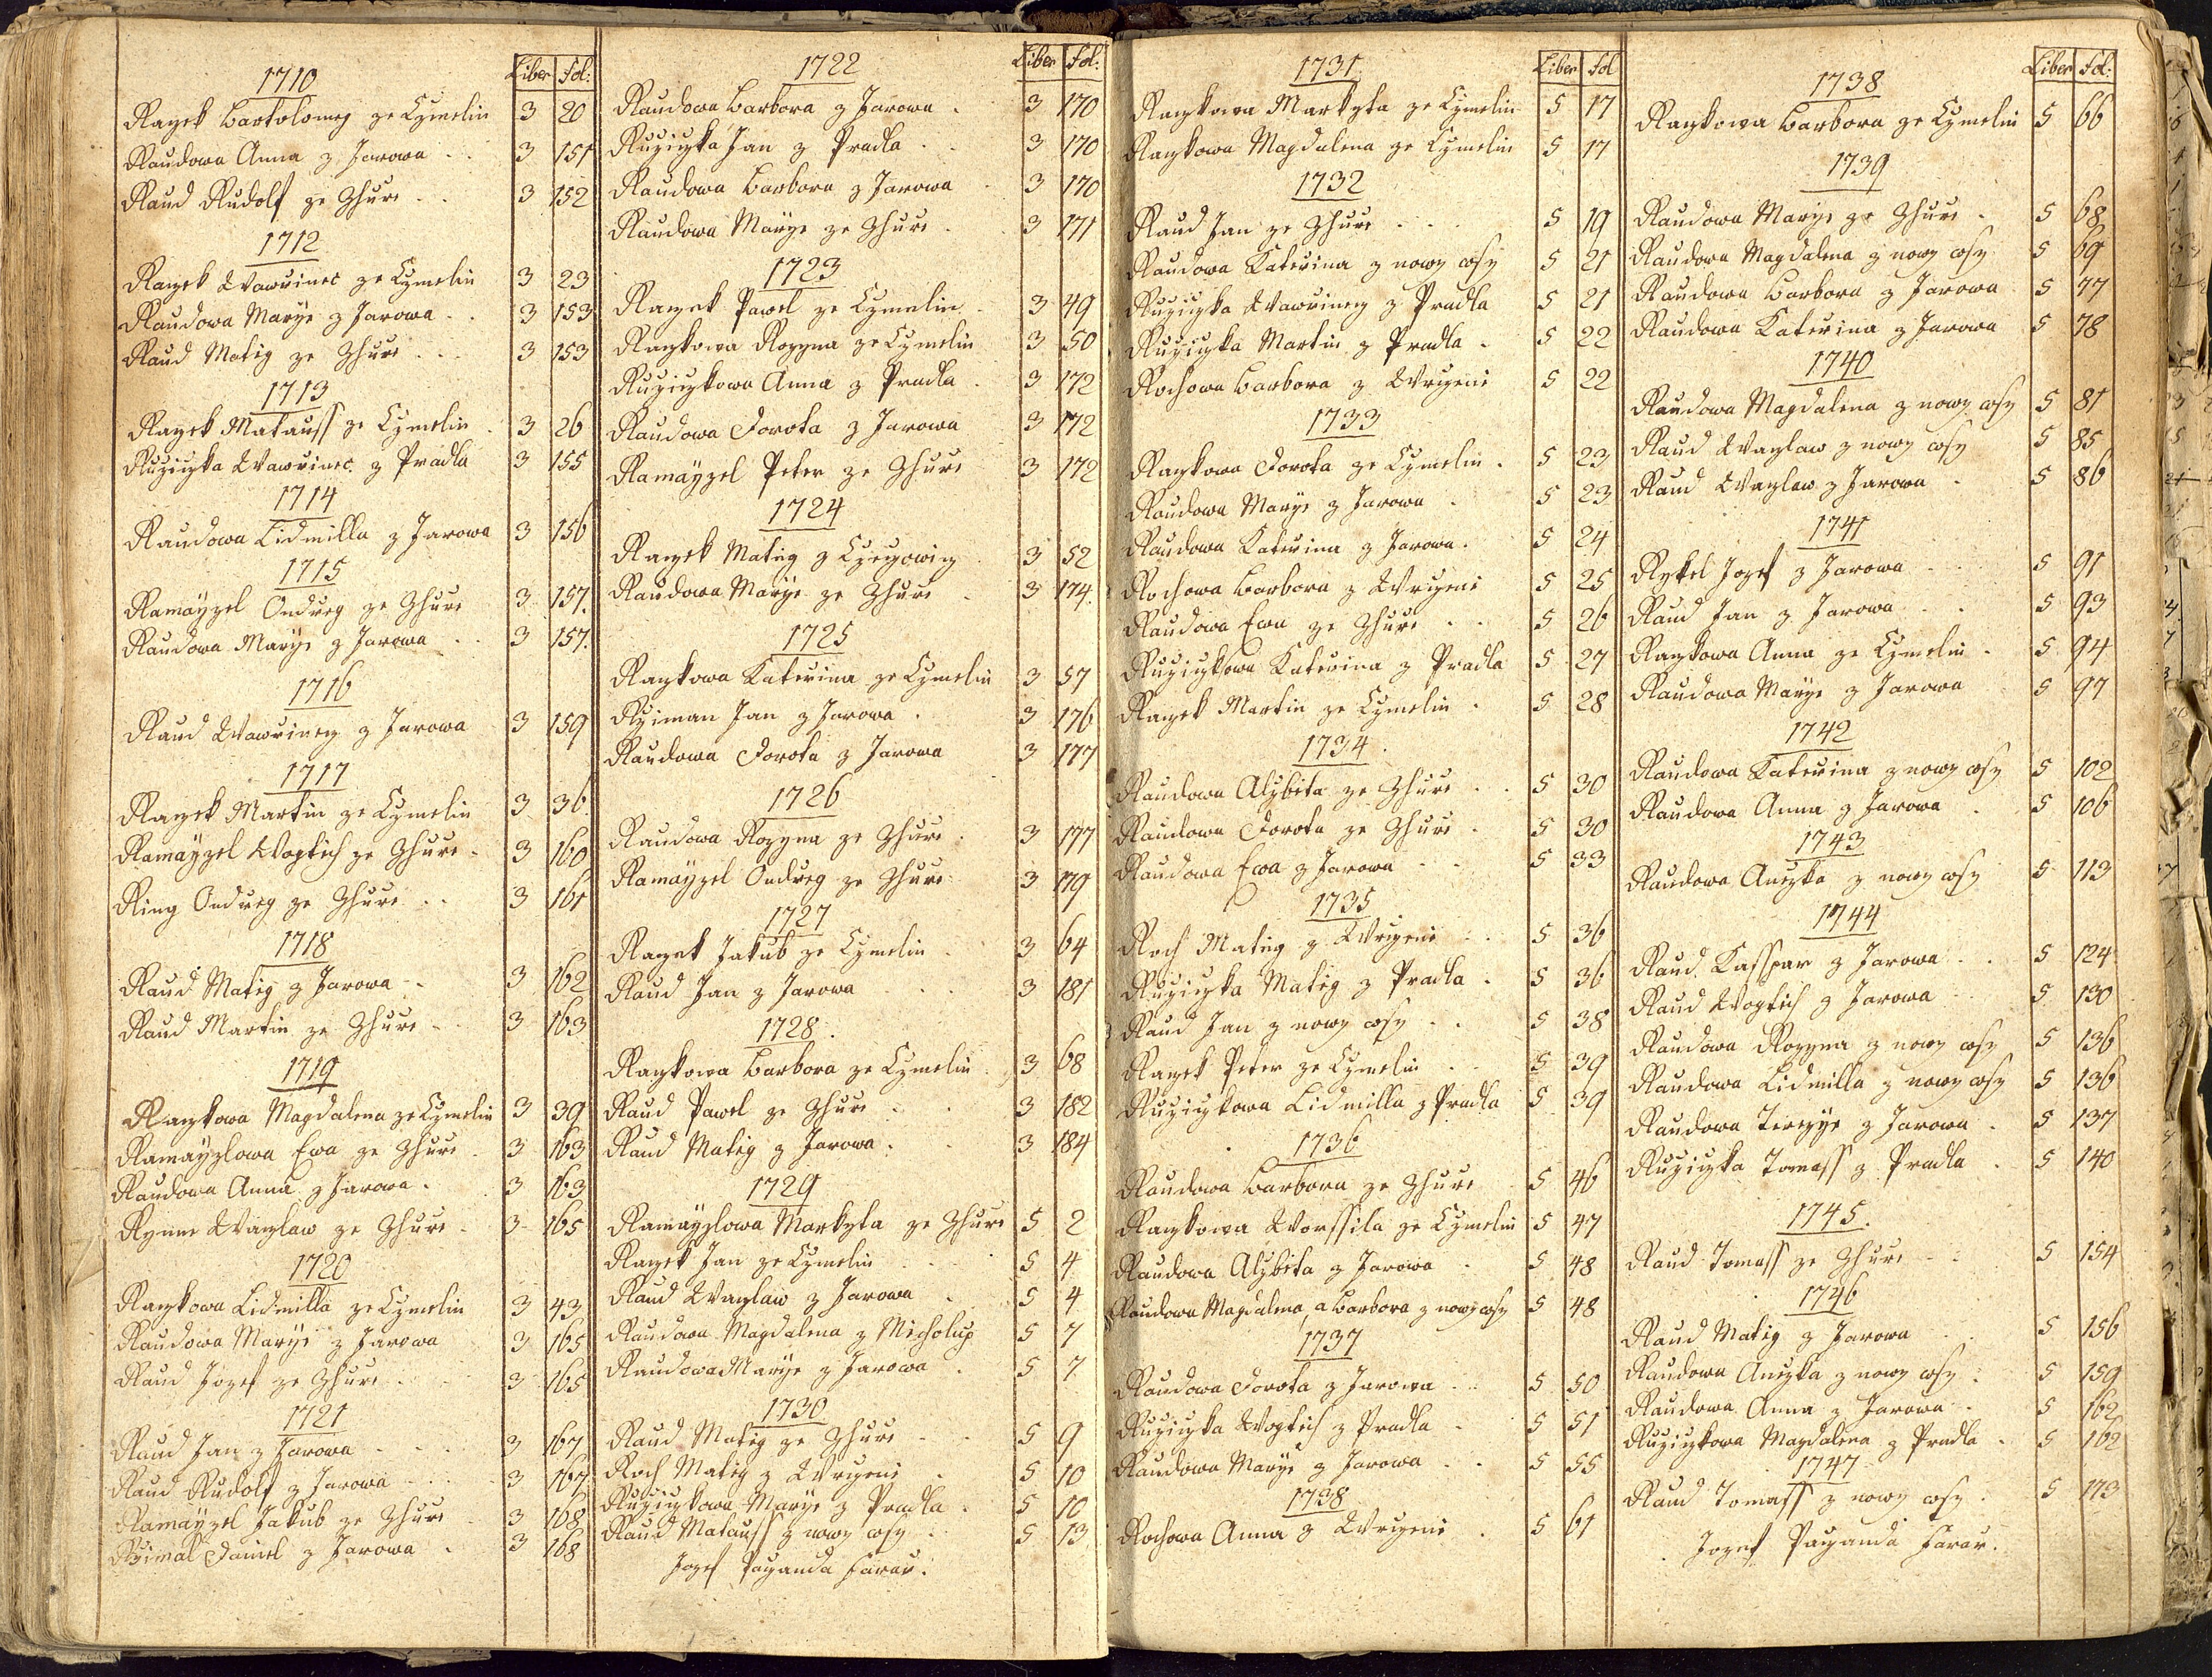 Liber Fol:
1710
Raczek Bartolomeg ze Czmelin 3 20
Raudowa Anna z Jarowa 3 151
Raud Rudolf ze Zhuře 3 152
1712
Raczek Wawřinec ze Czmelin 3 23
Raudowa Marye z Jarowa 3 153
Raud Matig ze Zhuře 3 153
1713
Raczek Matauss ze Czmelin 3 26
Ružicžka Wawřinec z Pradla 3 155
1714
Raudowa Lidmilla z Jarowa 3 156
1715
Ramayzel Ondreg ze Zhuře 3 157.
Raudowa Marye z Jarowa 3 157.
1716
Raud Wawřinecz z Jarowa 3 159
1717
Raczek Martin ze Czmelin 3 36
Ramayzel Wogtich ze Zhuře 3 160
Ring Ondreg ze Zhuře 3 161
1718
Raud Matig z Jarowa 3 162
Raud Martin ze Zhuře 3 163
1719
Raczkowa Magdalena ze Czmelin 3 39
Ramayzlowa Ewa ze Zhuře 3 163
Raudowa Anna z Jarowa 3 163
Wazlaw ze Zhuře 3 165
1720
Raczkowa Lidmilla ze Czmelin 3 43
Raudowa Marye z Jarowa 3 165
Raud Jozef ze Zhuře 3 165
1721
Raud Jan z Jarowa 3 167
Raud Rudolf z Jarowa 3 167
Ramayzel Jakub ze Zhuře 3 168
Daniel z Jarowa 3 168
Liber Fol:
1722
Raudowa Barbora z Jarowa 3 170
Ružicžka Jan z Pradla 3 170
Raudowa Barbora z Jarowa 3 170
Raudowa Marye ze Zhuře 3 171
1723
Raczek Pawel ze Czmelin 3 49
Raczkowa Rozyna ze Czmelin 3 50
Ružicžkowa Anna z Pradla 3 172
Raudowa Dorota z Jarowa 3 172
Ramayzel Peter ze Zhuře 3 172
1724
Raczek Matig z 3 52
Raudowa Marye ze Zhuře 3 174
1725
Raczkowa Kateřina ze Czmelin 3 57
Jan z Jarowa 3 176
Raudowa Dorota z Jarowa 3 177
1726
Raudowa Rozyna ze Zhuře 3 177
Ramayzel Ondreg ze Zhuře 3 179
1727
Raczek Jakub ze Czmelin 3 64
Raud Jan z Jarowa 3 181
1728
Raczkowa Barbora ze Czmelin 3 68
Raud Pawel ze Zhuře 3 182
Raud Matig z Jarowa 3 184
1729
Ramayzlowa Markyta ze Zhuře 5 2
Raczek Jan ze Czmelin 5 4
Raud Wazlaw z Jarowa 5 4
Raudowa Magdalena z Micholup 5 7
Raudowa Marye z Jarowa 5 7
1730
Raud Matig ze Zhuře 5 9
Roch Matig z Wrženi 5 10
Ružicžkowa Marye z Pradla 5 10
Raud Matauss z nowy wsy 5 13
Jozef Pažanda Farař.
Liber Fol
1731
Raczkowa Markyta ze Czmelin 5 17
Raczkowa Magdalena ze Czmelin 5 17
1732
Raud Jan ze Zhuře 5 19
Raudowa Kateřina z nowy wsy 5 21
Ružicžka Wawřinecz z Pradla 5 21
Ružicžka Martin z Pradla 5 22
Rochowa Barbora z Wrženi 5 22
1733
Raczkowa Dorota ze Czmelin 5 23
Raudowa Marye z Jarowa 5 23
Raudowa Kateřina z Jarowa 5 24
Rochowa Barbora z Wrženi 5 25
Raudowa Ewa ze Zhuře 5 26
Ružicžkowa Kateřina z Pradla 5 27
Raczek Martin ze Czmelin 5 28
1734
Raudowa Alzbita ze Zhuře 5 30
Raudowa Dorota ze Zhuře 5 30
Raudowa Ewa z Jarowa 5 33
1735
Roch Matig z Wrženi 5 36
Ružicžka Matig z Pradla 5 36
Raud Jan z nowy wsy 5 38
Raczek Peter ze Czmelin 5 39
Ružicžkowa Lidmilla z Pradla 5 39
1736
Raudowa Barbora ze Zhuře 5 46
Raczkowa Worssila ze Czmelin 5 47
Raudowa Alzbita z Jarowa 5 48
Raudowa Magdalena, a Barbora z nowy wsy 5 48
1737
Raudowa Dorota z Jarowa 5 50
Ružicžka Wogtich z Pradla 5 51
Raudowa Marye z Jarowa 5 55
1738
Rochowa Anna z Wrženi 5 61
Liber Fol:
1738
Raczkowa Barbora ze Czmelin 5 66
1739
Raudowa Marye ze Zhuře 5 68
Raudowa Magdalena z nowy wsy 5 69
Raudowa Barbora z Jarowa 5 77
Raudowa Kateřina z Jarowa 5 78
1740
Raudowa Magdalena z nowy wsy 5 81
Raud Wazlaw z nowy wsy 5 85
Raud Wazlaw z Jarowa 5 86
1741
Jozef z Jarowa 5 91
Raud Jan z Jarowa 5 93
Raczkowa Anna ze Czmelin 5 94
Raudowa Marye z Jarowa 5 97
1742
Raudowa Kateřina z nowy wsy 5 102
Raudowa Anna z Jarowa 5 106
1743
Raudowa Anežka z nowy wsy 5 113
1744
Raud Kasspar z Jarowa 5 124
Raud Wogtich z Jarowa 5 130
Raudowa Rozyna z nowy wsy 5 136
Raudowa Lidmilla z nowy wsy 5 136
Raudowa Terezye z Jarowa 5 137
Ružicžka Tomass z Pradla 5 140
1745.
Raud Tomass ze Zhuře 5 154
1746
Raud Matig z Jarowa 5 156
Raudowa Anežka z nowy wsy 5 159
Raudowa Anna z Jarowa 5 162
Ružicžkowa Magdalena z Pradla 5 162
1747
Raud Tomass z nowy wsy 5 173
Jozef Pažanda Farař.